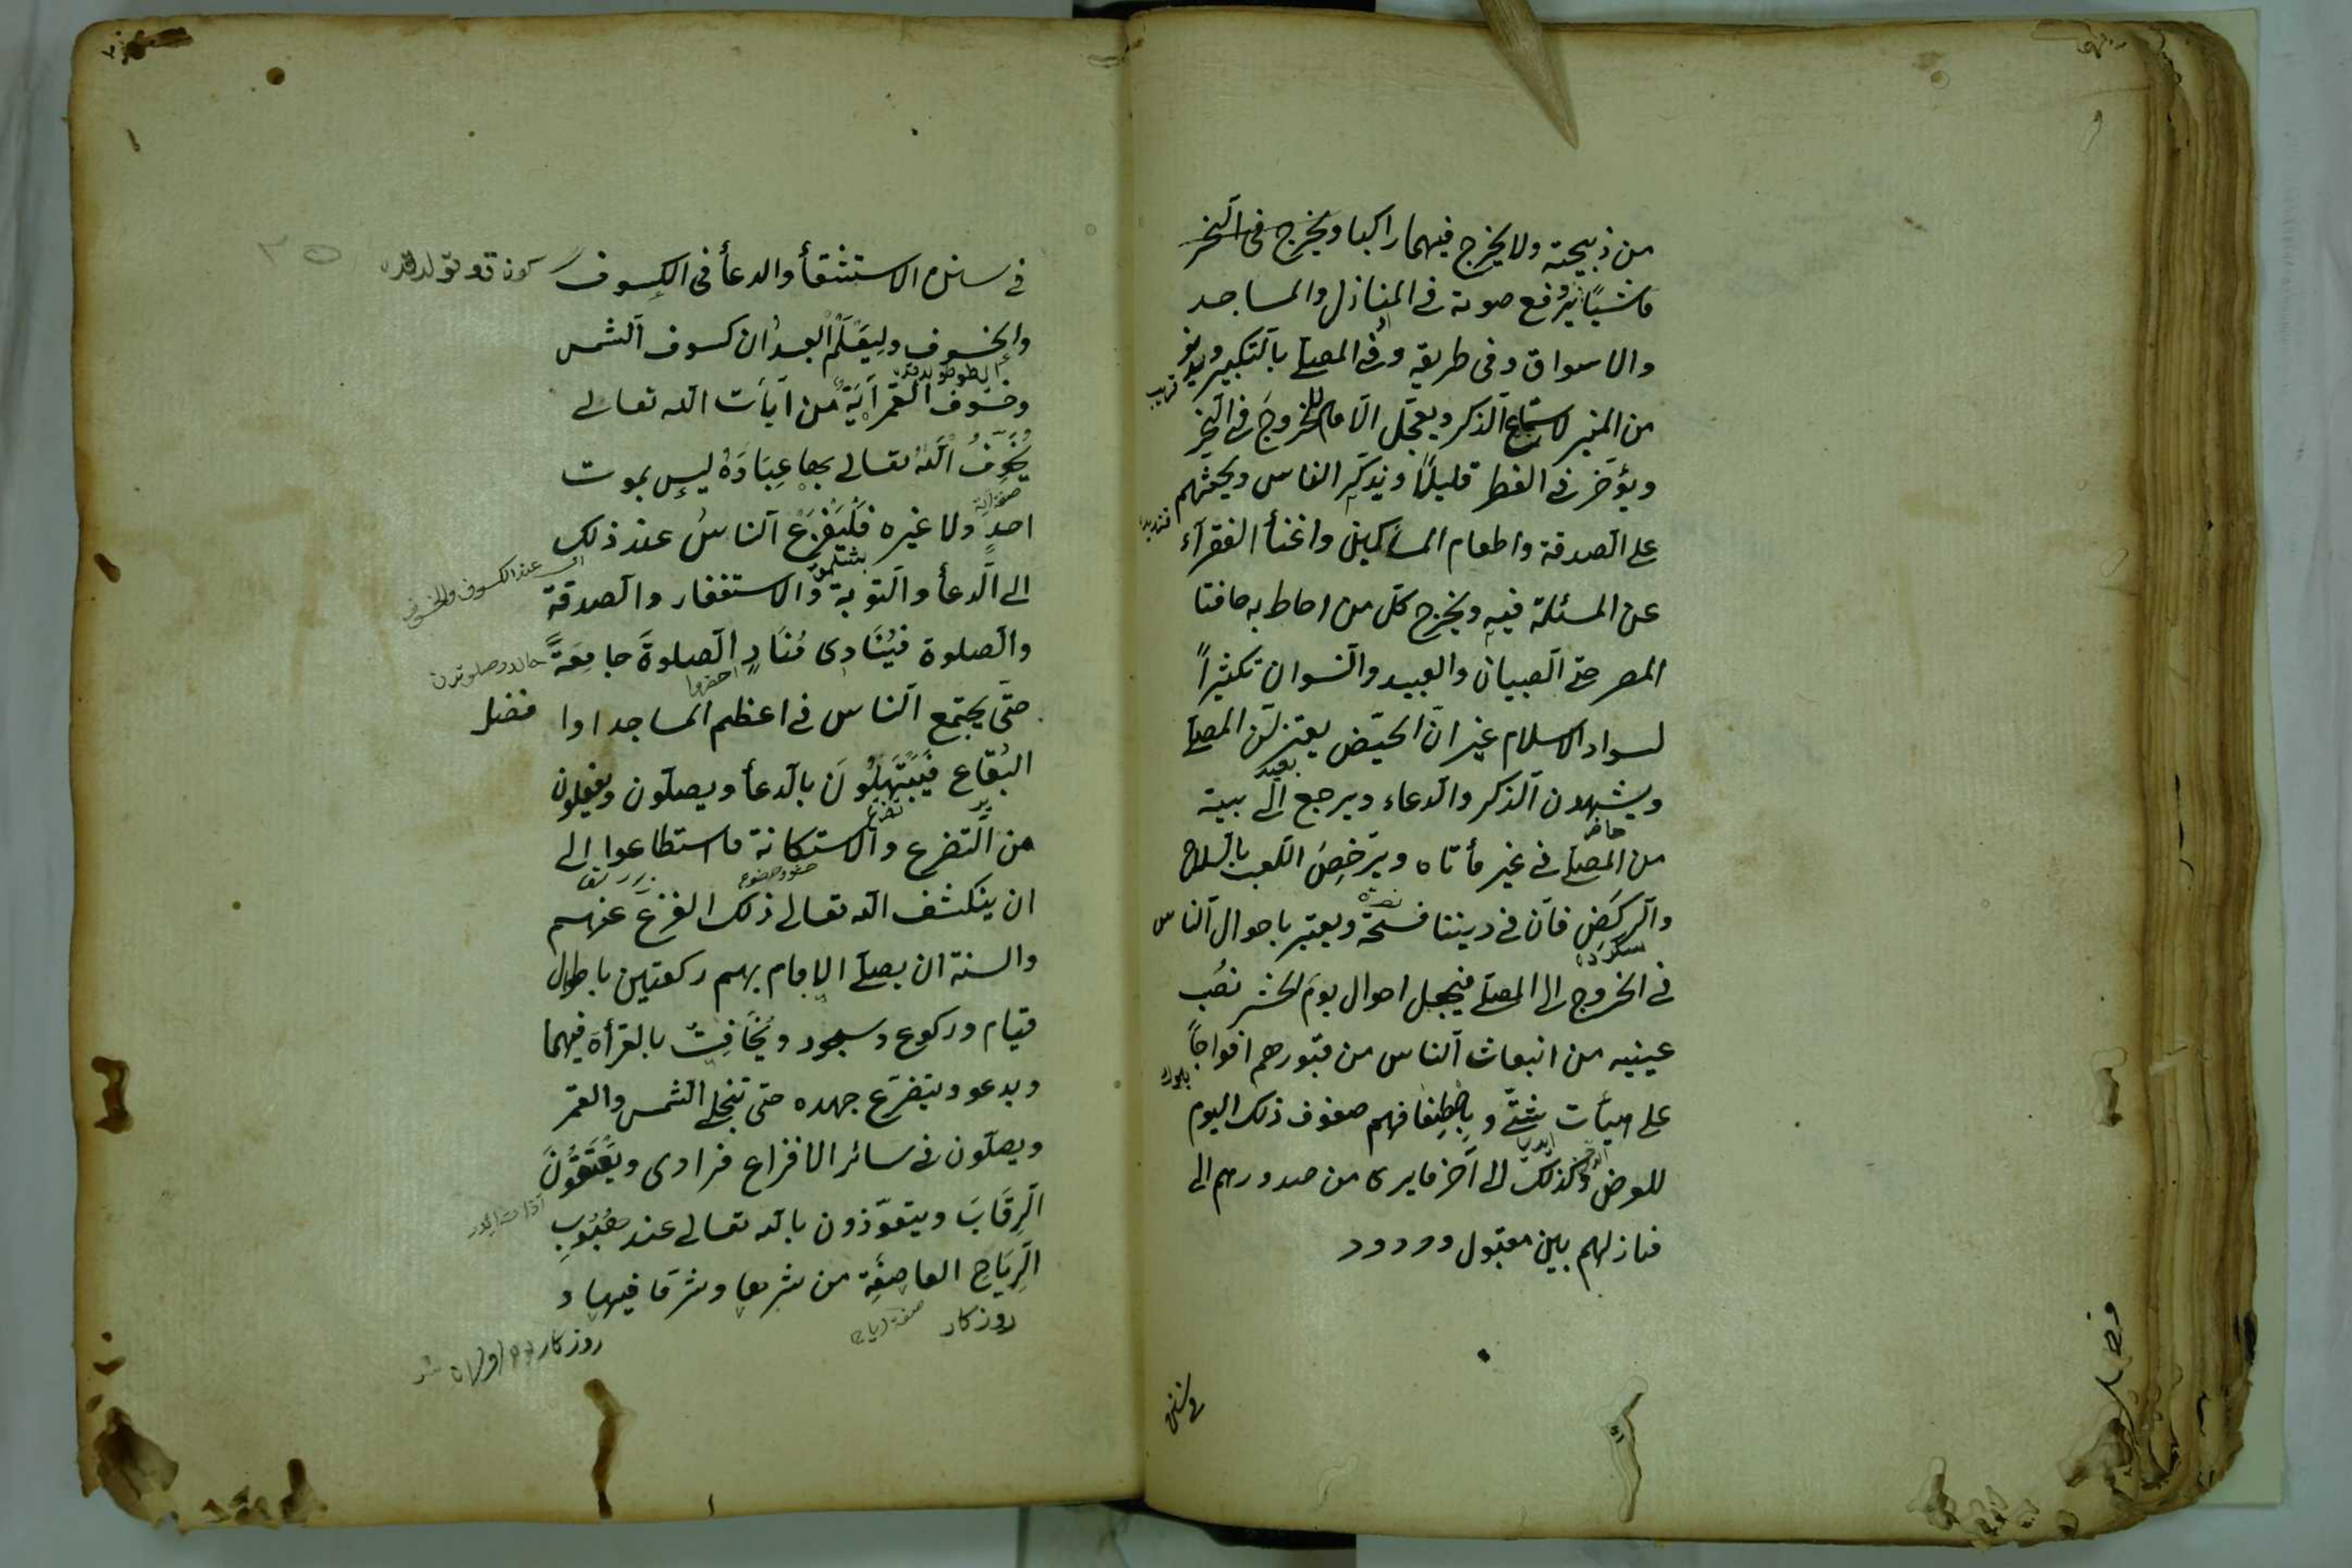 من ذبيحته ولا يخرج فيهما راكبا ويخرج فى النحر
ماشيًا يرفع صوته فى المنازل والمساجد
والاسواق وفى طريقه وفى المصلى بالتكبير ويدنو
من المنبر لاستماع الذكر ويعجّل الامام للخروج فى النحر
ويؤخر فى الفطر قليلًا ويذكّر الناس ويحثهم
على الصدقة واطعام المساكين واغنأ الفقرآء
عن المسئلة فيه ويخرج كل من احاط به حافتا
المصر حتى الصبيان والعبيد والنسوان تكثيرًا
لسواد الاسلام غير ان الحيّض يعتزلن المصلى
ويشهدون الذكر والدعاء ويرجع الى بيته
من المصلى فى غير مأتاه ويترخص اللعب بالسلاح
والركض فان فى ديننا فسحة ويعتبر باحوال الناس
فى الخروج الى المصلى فيجعل احوال يوم الحشر نصب
عينيه من انبعاث الناس من قبورهم افواجًا
على هيأت شتّى و باصطفافهم صفوف ذلك اليوم
للعرض وكذلك الى آخر ما يرى من صدورهم الى
منازلهم بين مقبول ومردود
فى سنن
فى سنن الاستسقأ والدعأ فى الكسوف
والخسوف وليَعْلَم العبد ان كسوف الشمس
وخسوف القمر آية من آيات الله تعالى
يُخَوِّفُ اللهُ تعالى بها عِبَادَهُ ليس بموت
احدٍ ولا غيره فليفزع الناسُ عند ذلك
اى عند الكسوف والخسوف
الى الدعأ والتوبة والاستغفار والصدقة
والصلوة فيُنَادِى مُنَادٍ الصلوةَ جامِعَةً
احضروا
حتّى يجتمع الناس فى اعظم المساجد اوا فضل
البُقاع فَيَبْتَهِلُونَ بالدعأ ويصلّون ويفعلون
تضرع
من التضرع والاستكانة ما استطاعوا الى
ان ينكشف الله تعالى ذلك الفزع عنهم
والسنة ان يصلّى الامام بهم ركعتين باطول
قيام وركوع وسجود ويُخَافِتُ بالقرأة فيهما
ويدعو ويتضرّع جهده حتى تنجلى الشمس والقمر
ويصلّون فى سائر الافزاع فرادى ويعْتِقُونَ
الرِقَابَ ويتعوّذون بالله تعالى عند هُبُوبِ
الرِيَاحِ العاصِفَةِ من شرها وشر ما فيها و
روزكار
روزكار